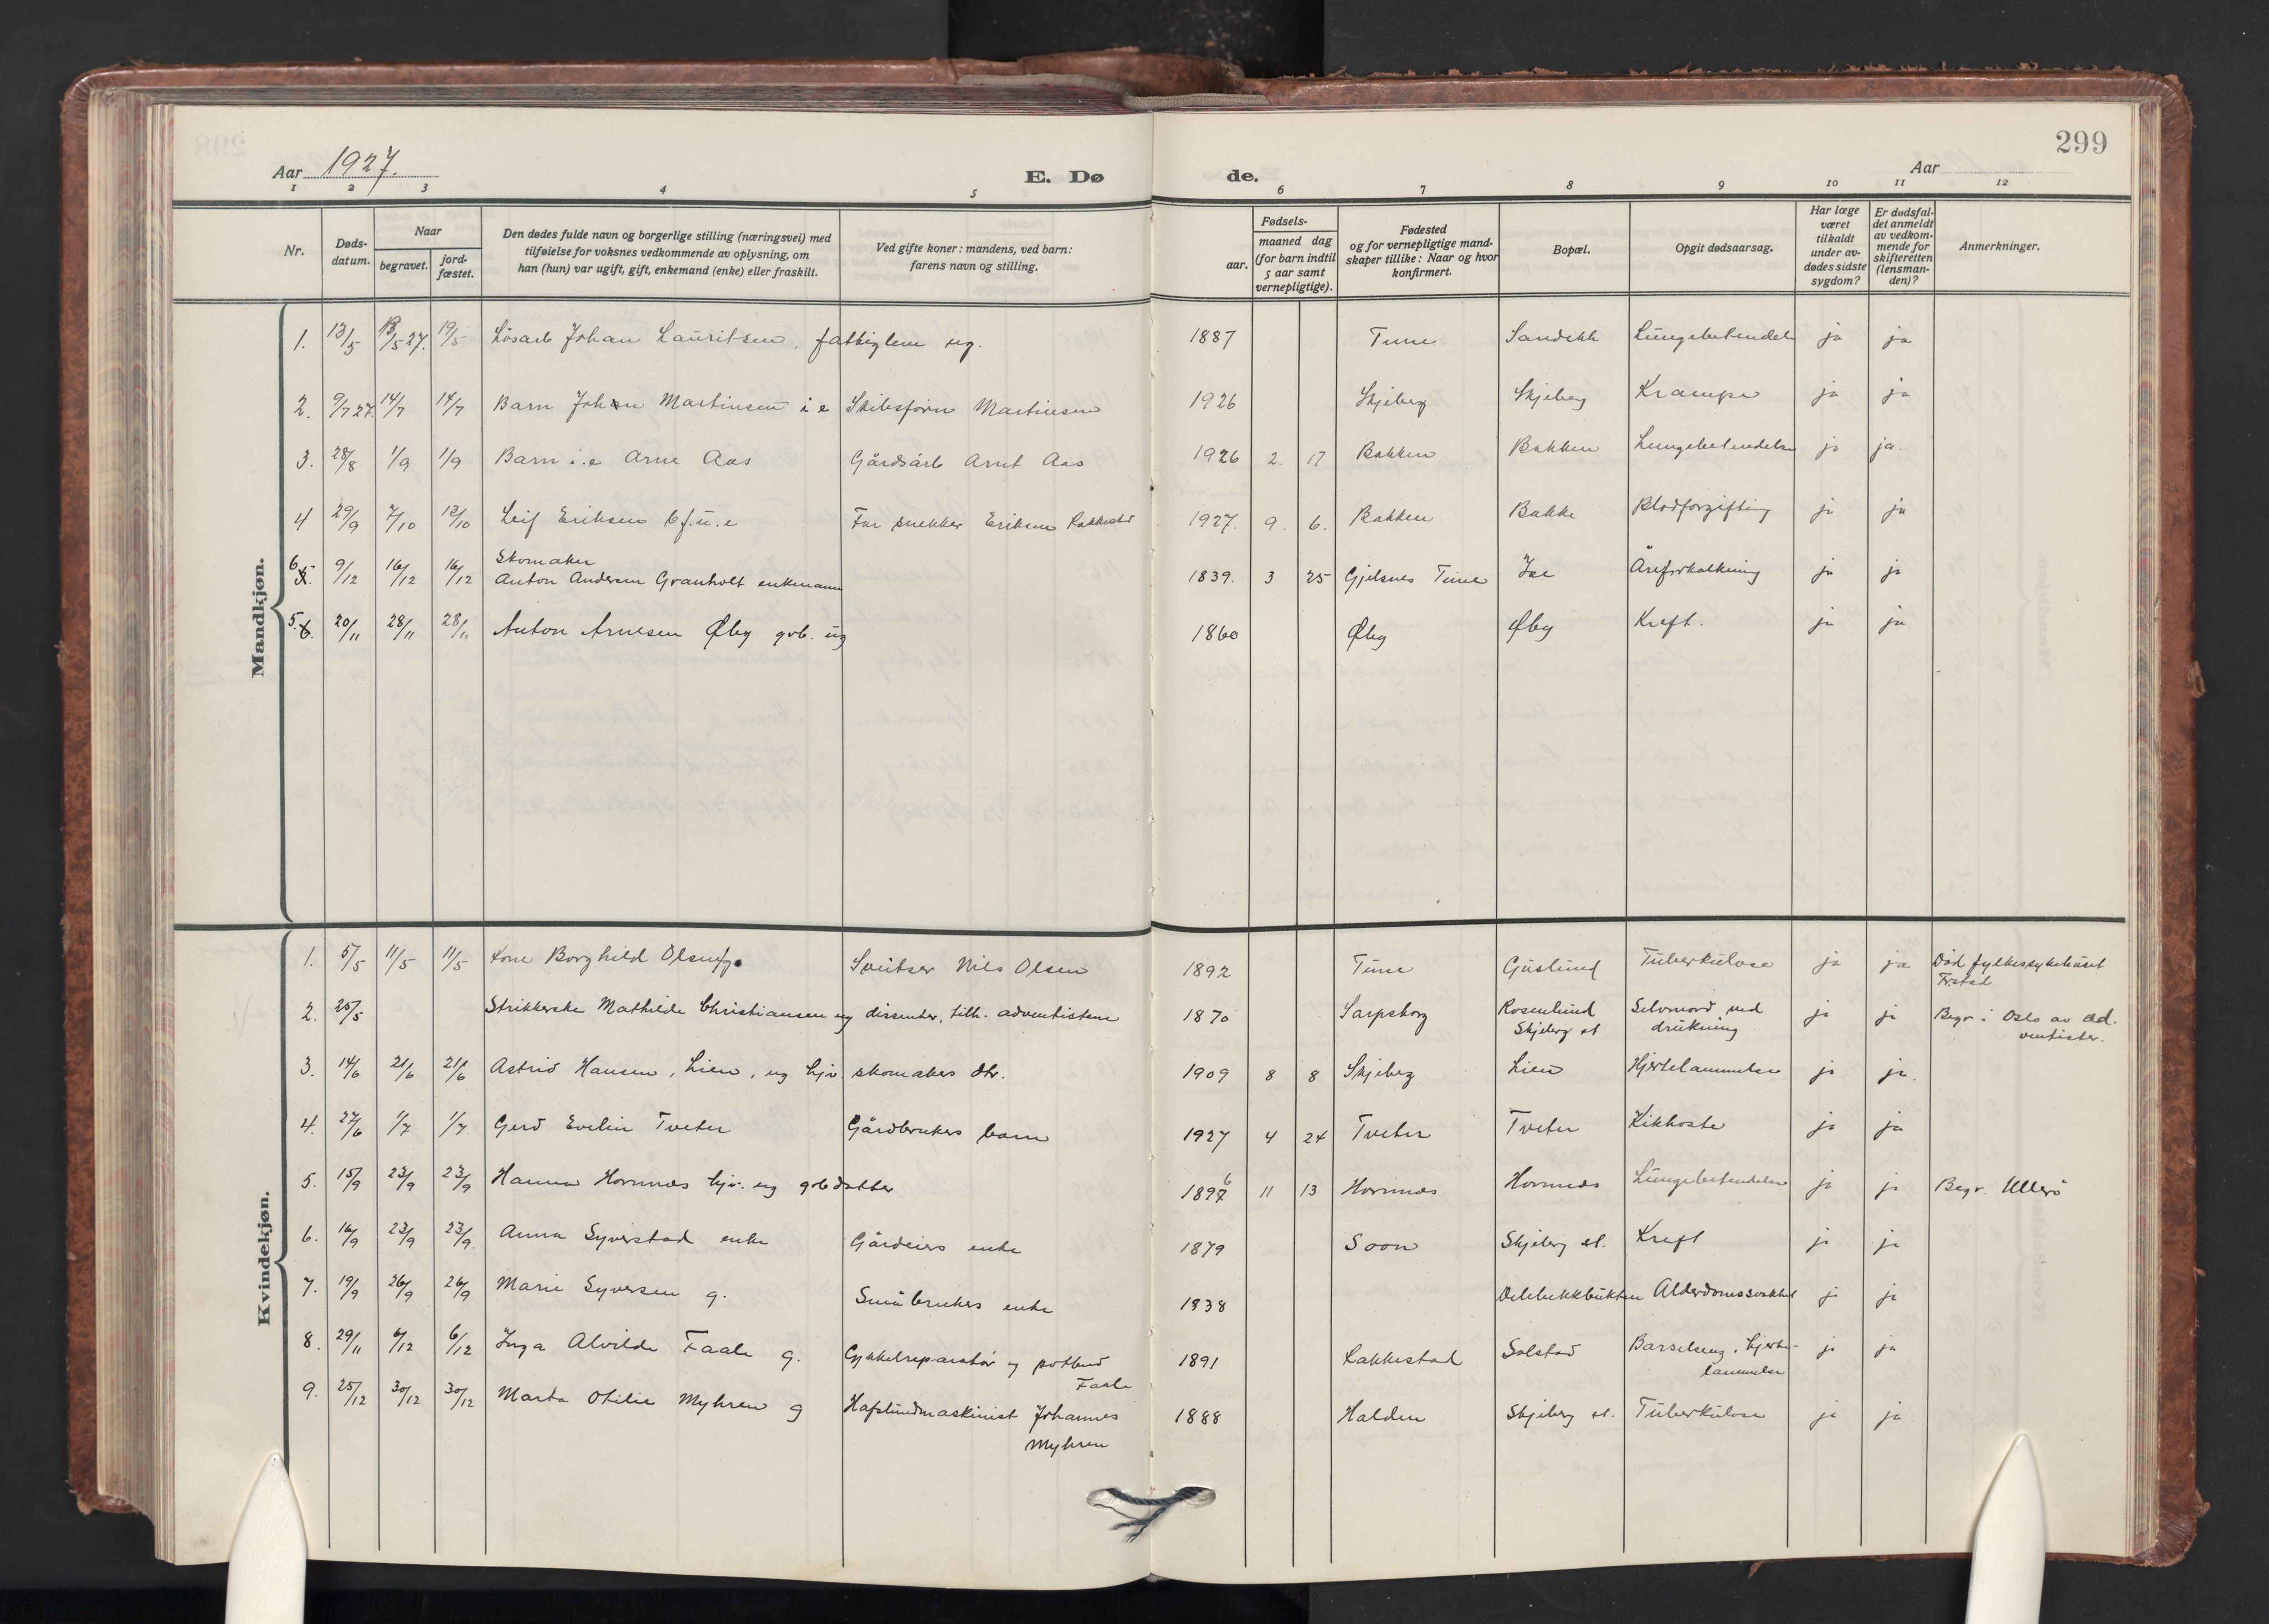 299
Aar 1927.
E. Dø de.
Aar
1 2 3 4 5 6 7 8 9 10 11 12
Nr.
Døds-
datum.
Naar
begravet.
jord-
fæstet.
Den dødes fulde navn og borgerlige stilling (næringsvei) med
tilføielse for voksnes vedkommende av oplysning, om
han (hun) var ugift, gift, enkemand (enke) eller fraskilt.
Ved gifte koner: mandens, ved barn:
farens navn og stilling.
Fødsels-
aar.
maaned dag
(for barn indtil
5 aar samt
vernepligtige).
Fødested
og for vernepligtige mand-
skaper tillike: Naar og hvor
konfirmert.
Bopæl.
Opgit dødsaarsag.
Har læge
været
tilkaldt
under av-
dødes sidste
sygdom?
Er dødsfal-
det anmeldt
av vedkom-
mende for
skifteretten
(lensman-
den)?
Anmerkninger.
Mandkjøn.
1. 13/5 13/5 27. 19/5 Løsarb Johan Lauritsen, fattiglem ug. 1887 Tune Sandekk Lungebetendels ja ja
2. 9/7 27. 14/7 14/7 Barn Johan Martinsen i e Skibsførn Martinsen 1926 Skjeberg Skjeberg Krampe ja ja
3. 28/8 1/9 1/9 Barn i.e Arne Aas Gårdsarb Arnt Aas 1926 2. 17 Bakken Bakken Lungebetendelse ja ja.
4 29/9 7/10 12/10 Leif Eriksen b f. u. e Far snekker Eriksen Rakkestd 1927. 9. 6. Bakken Bakke Blodforgifting ja ja
Skomaker
6 5. 9/12 16/12 16/12 Anton Andersen Granholt enkemann 1839. 3 25 Gjelsnes Tune Ise Åreforkalkning ja ja
5. 6. 20/11 28/11 28/11 Anton Arnesen Øby gvb. ug 1860 Øby Øby Kreft. ja ja
Kvindekjøn.
1. 5/5 11/5 11/5 Kone Borghild Olsen g. Sveitser Nils Olsen 1892 Tune Guslund Tuberkulose ja ja Död fylkessykehuset
Fr.stad
2. 25/5 Strikkerske Mathilde Christiansen ug dissenter, tilh. adventistene 1870 Sarpsborg Rosenlund Selvmord ved ja ja Begr i Oslo av ad.
Skjeberg st drukning ventister.
3. 14/6 21/6 21/6 Astrid Hansen, Lien, ug hjv. skomakers dtr. 1909 8 8 Skjeberg Lien Hjertelammelse ja ja.
4. 27/6 1/7 1/7. Gerd Evelin Tveter Gårdbrukers barn 1927 4 24 Tveter Tveter Kikhoste ja ja
5. 15/9 23/9 23/9 Hanna Hornnes hjv. ug gvb datter 1897 6 11 13 Hornnes Hornnes Lungebetendelse ja ja Begr. Ullerö
6. 16/9 23/9 23/9. Anna Syverstad enke Gårdeiers enke 1879 Soon Skjeberg st. Kreft ja ja
7. 19/9 26/9 26/9 Marie Syversen g. Småbrukers enke 1838 Delebekkbukten Alderdomssvakhet ja ja
8. 29/11 6/12 6/12 Inga Alvilde Faale g. Cykkelreparatör og postbud 1891 Rakkestad Solstad Barselseng, hjerte- ja ja
Faale lammelse
9. 25/12 30/12 30/12 Marta Otilie Myhren g Hafslundmaskinist Johannes 1888 Halden Skjeberg st. Tuberkulose ja ja
Myhren